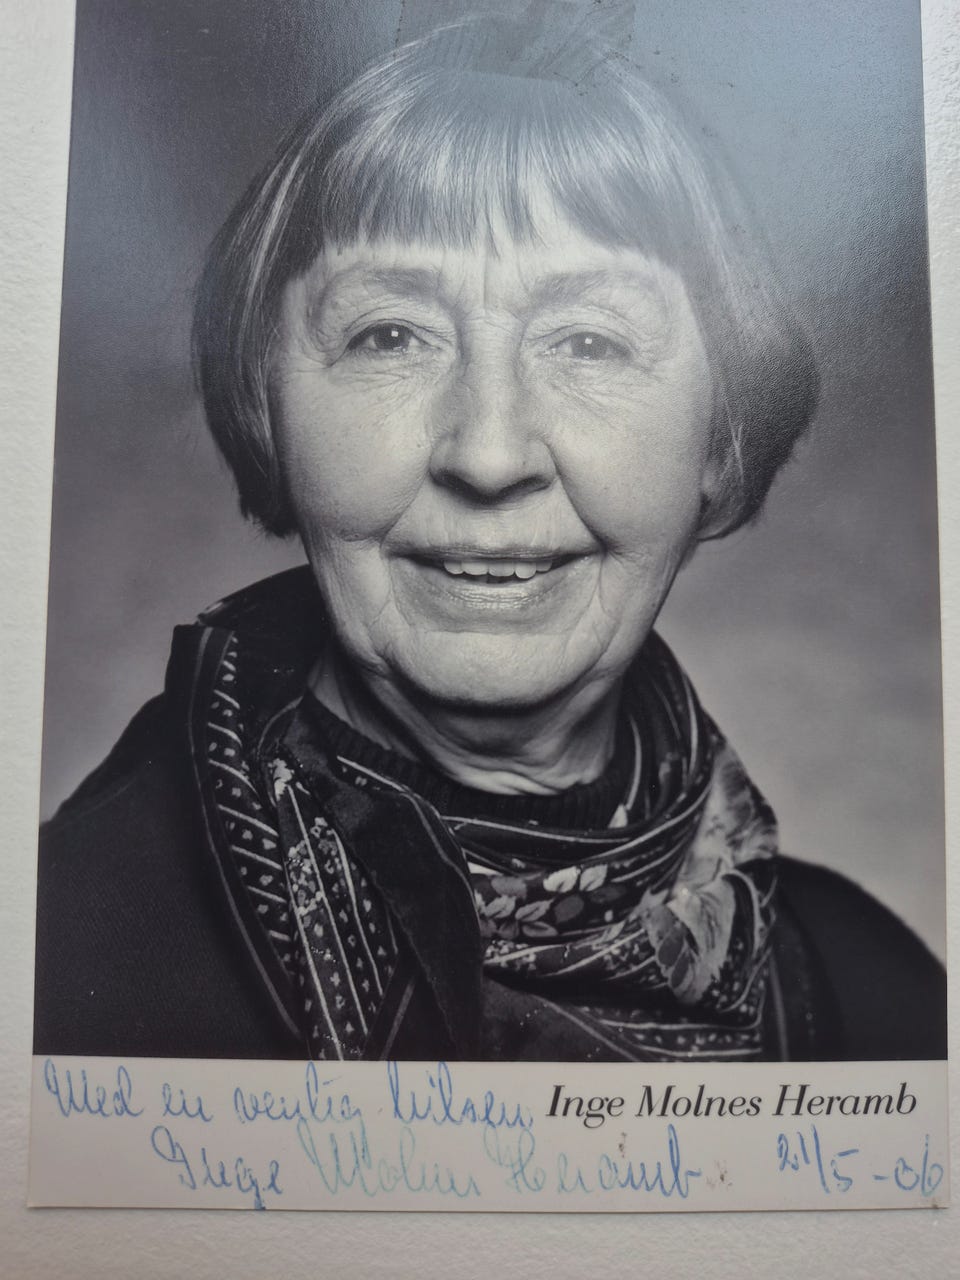 Inge Molnes Heramb
Med en vennlig hilsen
Inge Molnes Heramb 21/5-06